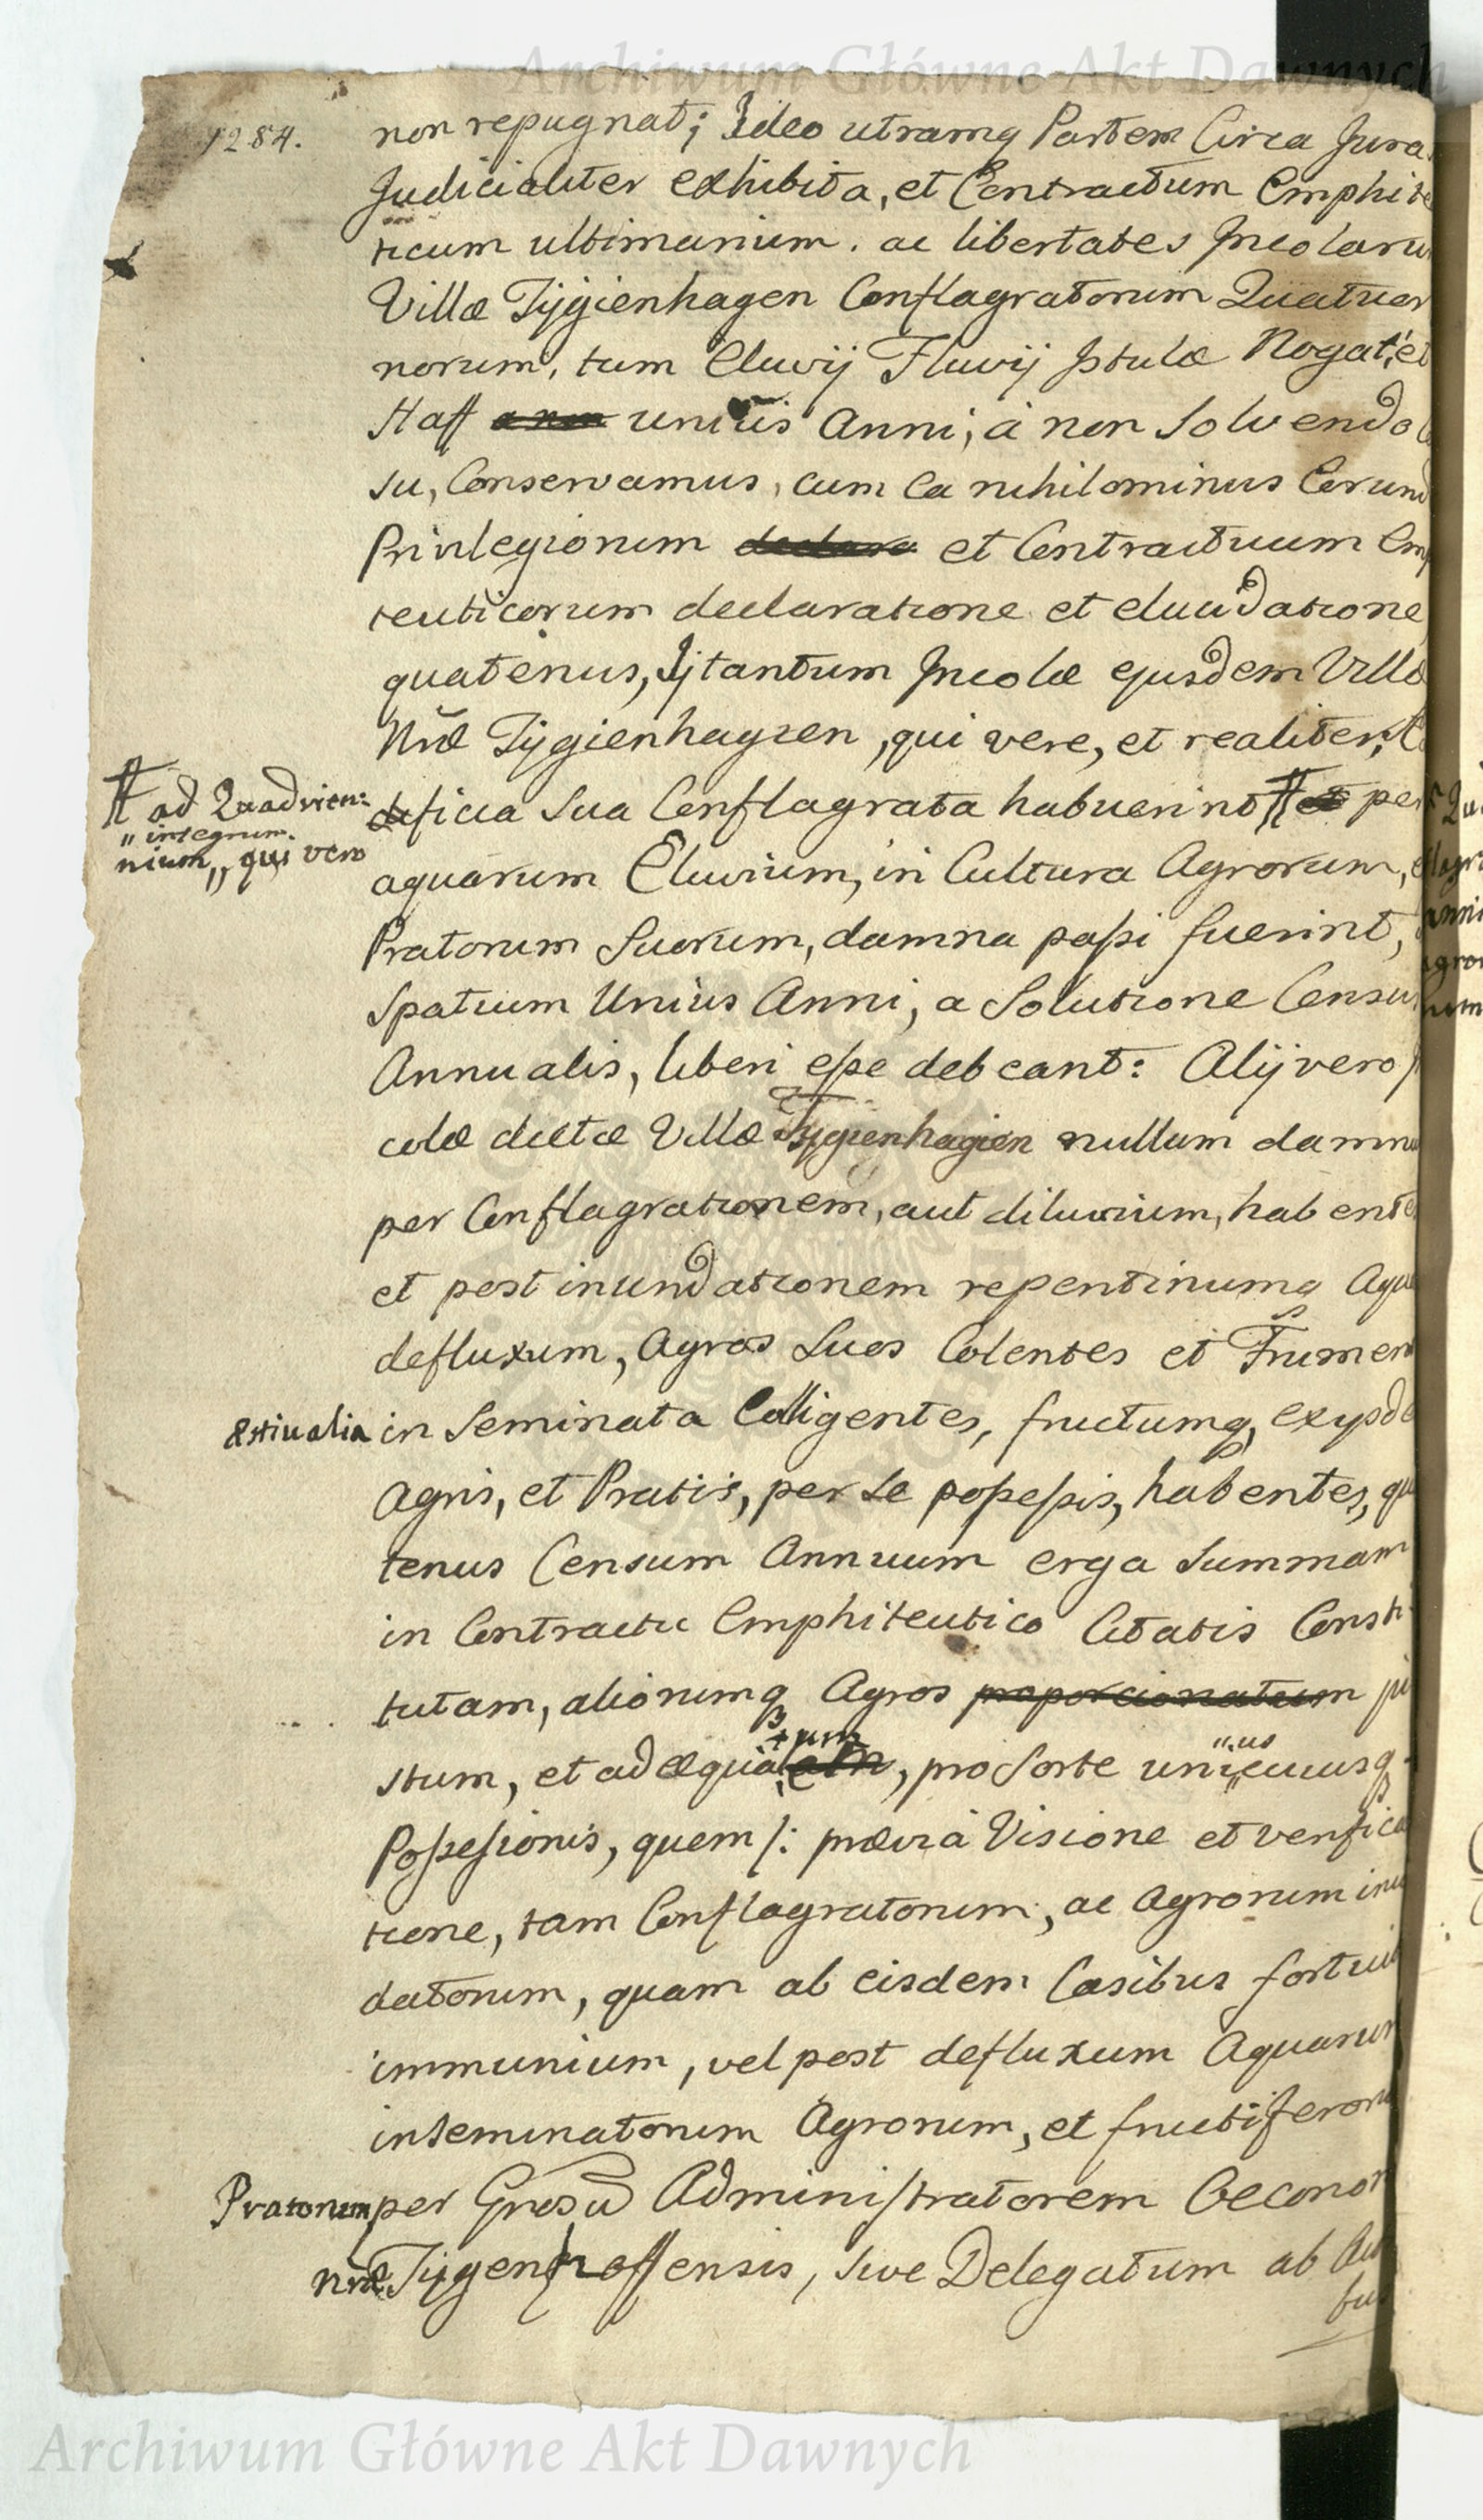 Archiwum Główne Akt Dawnych
1284.
non repugnat; Ideo utramq Partem Circa Jura
Judicialiter exhibita, et Contractum Emphite
ticum ultimarium. ac libertates Incolaru
Villæ Tÿgienhagen Conflagratorum Quatuor
norum, tum Eluvij Fluvij Istulæ Nogat, et
Haff unius Anni, à non Solvendo
su, Conservamus, cum Ea nihilominus Eorund
Privilegiorum et Contractuum Emp
teuticorum declaratione et elucidatione
quatenus, Ij tantum Incolæ ejusdem Villæ
Nræ Tÿgienhagen, qui vere, et realiter,
dificia Sua Conflagrata habuerint # per
# ad Quadrien:
" integrum.
nium,, qui vero
aquarum Eluvium, in Cultura Agrorum, e
Pratorum Suorum, damna passi fuerint,
Spatium Unius Anni, a Solutione Censu
Annualis, liberi esse debeant: Alij vero
colæ dictæ Villæ Tÿgienhagien nullum damnu
per Conflagrationem, aut diluvium, habente
et post inundationem repentinumq Aqua
defluxum, Agros Suos Colentes et Frumen
Æstiualia in Seminata Colligentes, fructumq, ex ysde
Agris, et Pratis, per se possessis, habentes, qua
tenus Censum Annuum erga Summam
in Contractu Emphiteutico Citatis Consti
tutam, aliorumq Agros proporcionatum ju
stum, et adæquatum, pro Sorte uniuscuiusq
Possessionis, quem /: prævia Visione et verifica
tione, tam Conflagratorum, ac Agrorum inu
datorum, quam ab eisdem Casibus fortuit
immunium, vel post defluxum Aquarum
inseminatorum Agrorum, et fructiferoru
Pratorum per Grosū Administratorem Oeconom
Nræ Tÿgenhoffensis, sive Delegatum ab
Archiwum Główne Akt Dawnych